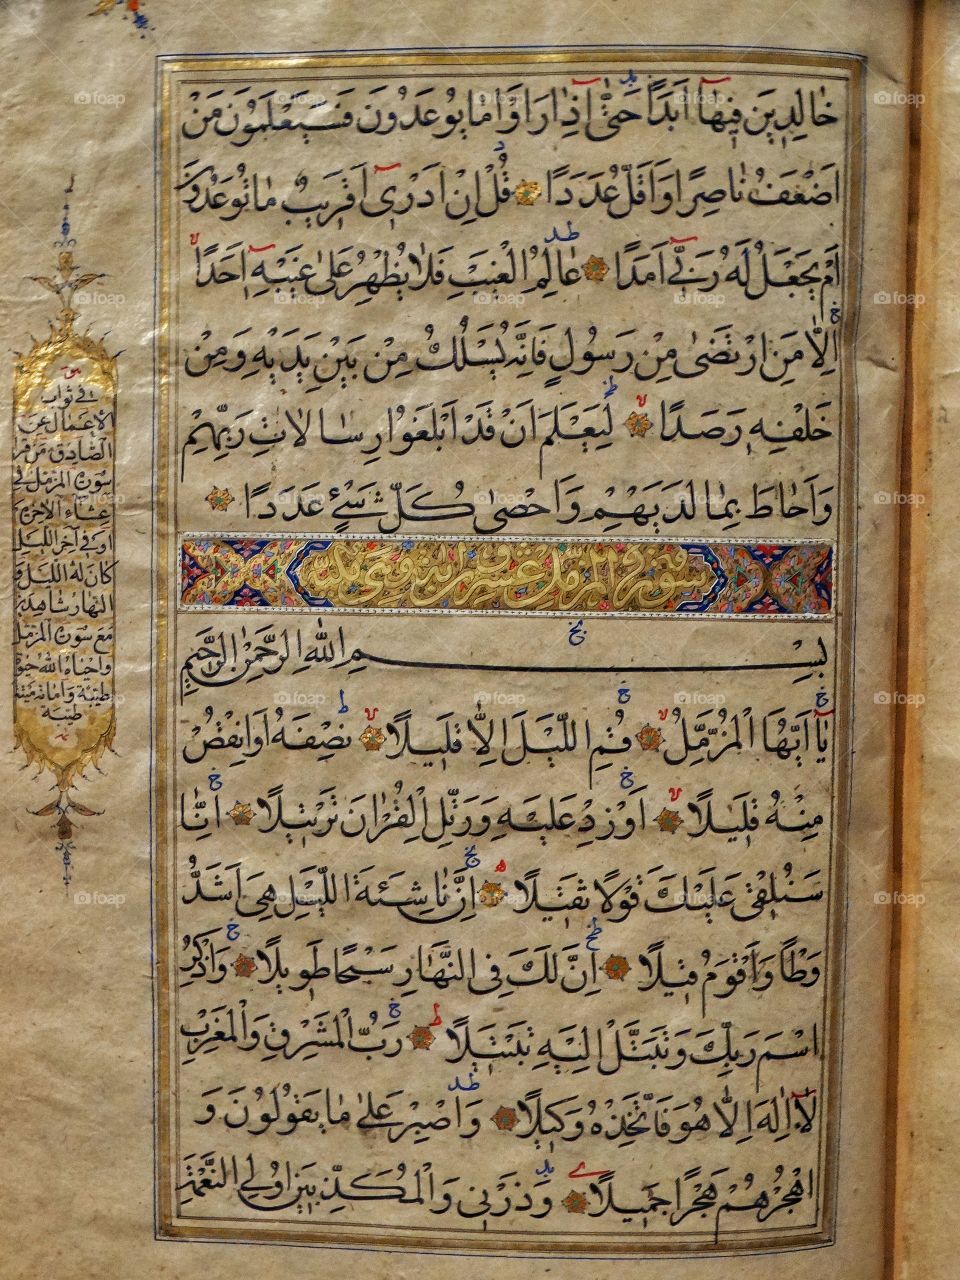 خٰالِدِينَ فِيهٰآ اَبَدًا حَتّٰىٓ اِذٰا رَاَوْا مٰا يُوعَدُونَ فَسَيَعْلَمُونَ مَنْ
اَضْعَفُ نٰاصِرًا وَاَقَلُّ عَدَدًا قُلْ اِنْ اَدْرِىٓ اَقَرِيبٌ مٰا تُوعَدُونَ
اَمْ يَجْعَلُ لَهُ رَبّىٓ اَمَدًا عٰالِمُ الْغَيْبِ فَلٰا يُظْهِرُ عَلىٰ غَيْبِهٓ اَحَدًا
اِلّٰا مَنِ ارْتَضىٰ مِنْ رَسُولٍ فَاِنَّهُ يَسْلُكُ مِنْ بَيْنِ يَدَيْهِ وَمِنْ
خَلْفِهِ رَصَدًا لِيَعْلَمَ اَنْ قَدْ اَبْلَغُوا رِسٰالٰاتِ رَبِّهِمْ
وَاَحٰاطَ بِمٰا لَدَيْهِمْ وَاَحْصىٰ كُلَّ شَىْءٍ عَدَدًا
سورة المزمل عشرون اية وهى مكية
بِسْمِ اللّٰهِ الرَّحْمٰنِ الرَّحيمِ
يٰآ اَيُّهَا الْمُزَّمِّلُ قُمِ اللَّيْلَ اِلّٰا قَلِيلًا نِصْفَهُ اَوِ انْقُصْ
مِنْهُ قَلِيلًا اَوْ زِدْ عَلَيْهِ وَرَتِّلِ الْقُرْاٰنَ تَرْتِيلًا اِنّٰا
سَنُلْقِى عَلَيْكَ قَوْلًا ثَقِيلًا اِنَّ نٰاشِئَةَ اللَّيْلِ هِىَ اَشَدُّ
وَطْاً وَاَقْوَمُ قِيلًا اِنَّ لَكَ فِى النَّهٰارِ سَبْحًا طَوِيلًا وَاذْكُرِ
اسْمَ رَبِّكَ وَتَبَتَّلْ اِلَيْهِ تَبْتِيلًا رَبُّ الْمَشْرِقِ وَالْمَغْرِبِ
لٰآ اِلٰهَ اِلّٰا هُوَ فَاتَّخِذْهُ وَكِيلًا وَاصْبِرْ عَلىٰ مٰا يَقُولُونَ وَ
اهْجُرْهُمْ هَجْرًا جَمِيلًا وَذَرْنِى وَالْمُكَذِّبِينَ اُولِى النَّعْمَةِ
فى ثواب
الاعمال عن
الصادق من قرا
سورة المزمل فى
عشاء الاخرة
او فى آخر الليل
كان له الليل و
النهار شاهدين
مع سورة المزمل
واحياه الله حيوة
طيبة واماته ميتة
طيبة
foap